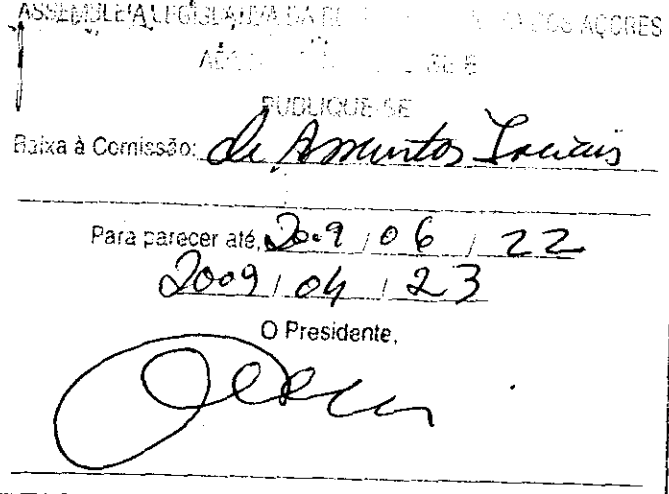 ASSEMBLEIA LEGISLATIVA DA DOS AÇORES
PUBLIQUE-SE
Baixa à Comissão: de Assuntos Sociais
Para parecer até, 2009 / 06 / 22
2009 / 04 / 23
O Presidente,